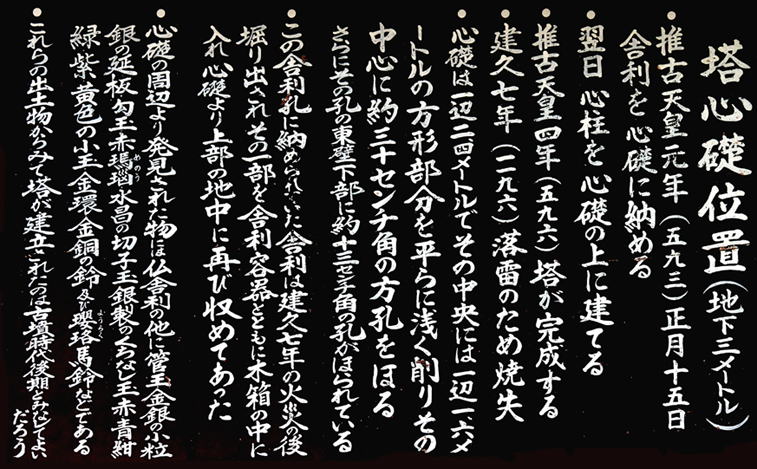 塔心礎位置(地下三メートル)
• 推古天皇元年(五九三)正月十五日
舎利を心礎に納める
• 翌日 心柱を心礎の上に建てる
• 推古天皇四年(五九六)塔が完成する
• 建久七年(一一九六)落雷のため焼失
• 心礎は一辺二四メートルでその中央には一辺一六メ
ートルの方形部分を平らに浅く削りその
中心に約三十センチ角の方孔をほる
さらにその孔の東壁下部に約十三センチ角の孔がほられている
• この舎利孔に納められていた舎利は建久七年の火災の後
堀り出されその一部を舎利容器とともに木箱の中に
入れ心礎より上部の地中に再び収めてあった
• 心礎の周辺より発見された物は仏舎利の他に管玉金銀の小粒
銀の延板勾玉赤瑪瑙めのう水晶の切子玉銀製のくちなし玉赤青紺
緑紫黄色の小玉金環金銅の鈴及び瓔珞ようらく馬鈴などである
• これらの出土物からみて塔が建立されたのは古墳時代後期とみなしてよい
だろう